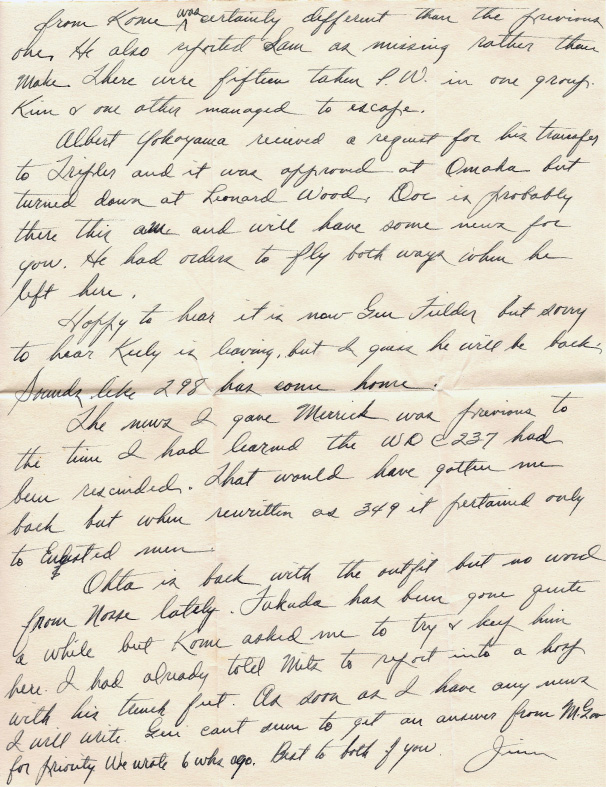 from Kome was certainly different than the privious
one. He also reported Sam as missing rather than
Make. There were fifteen taken P.W. in one group.
Kim & one other managed to escape.
Albert Yokoyama recieved a request for his transfer
to Tripler and it was approved at Omaha but
turned down at Leonard Wood. Doc is probably
there this am and will have some news for
you. He had orders to fly both ways when he
left here.
Happy to hear it is now Gen Fielder but sorry
to hear Kuly is leaving, but I guess he will be back.
Sounds like 298 has come home.
The news I gave Merrick was previous to
the time I had learned the WD C 237 had
been rescinded. That would have gotten me
back but when rewritten as 349 it pertained only
to Enlisted men
Ohta is back with the outfit but no word
from Nosse lately. Fukuda has been gone quite
a while but Kome asked me to try & keep him
here. I had already told Mits to report into a hosp
with his trench feet. As soon as I have any news
I will write. Gen cant seem to get an answer from McGov
for priority We wrote 6 wks ago. Best to both of you. Jim